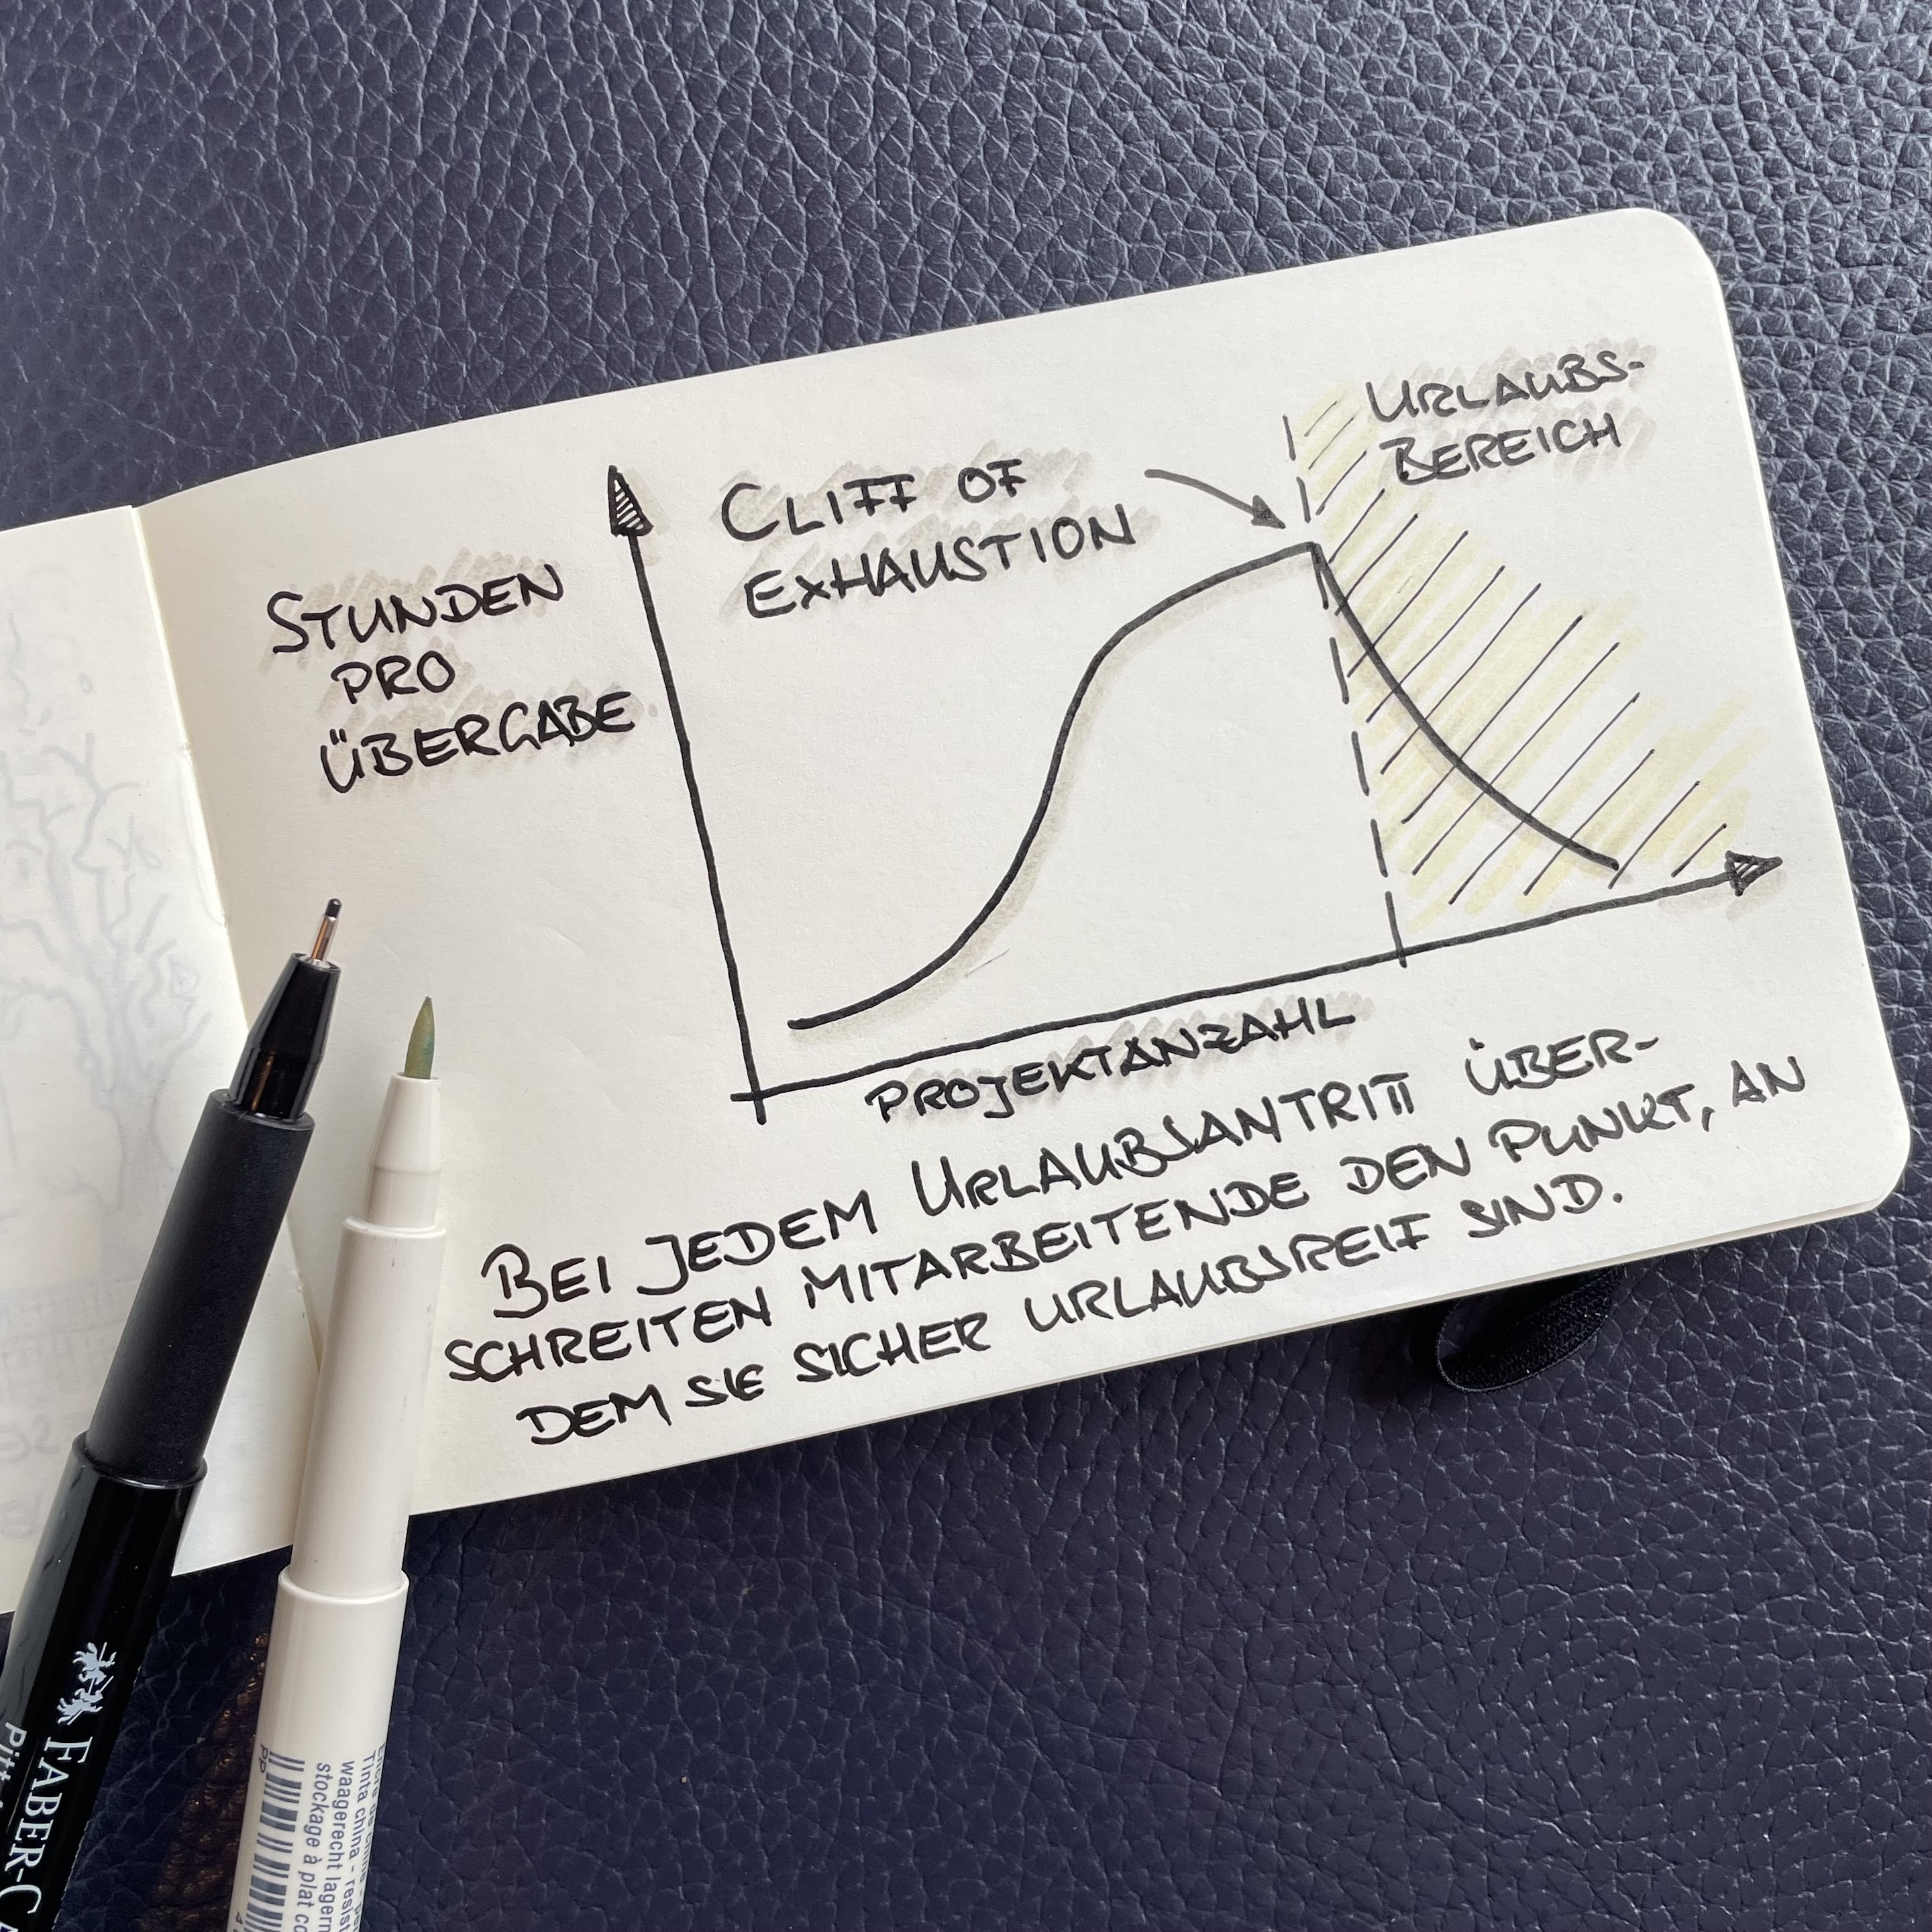 URLAUBS-
BEREICH
CLIFF OF
EXHAUSTION
STUNDEN
PRO
ÜBERGABE
PROJEKTANZAHL
BEI JEDEM URLAUBSANTRITT ÜBER-
SCHREITEN MITARBEITENDE DEN PUNKT, AN
DEM SIE SICHER URLAUBSREIF SIND.
FABER-CA
Pitt
Tinta china - resist
waagerecht lagern
stockage à plat co